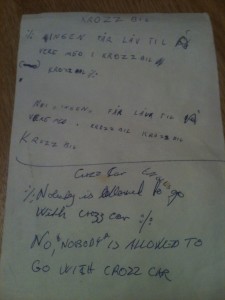 CROZZ BIL
·/. INGEN FÅR LOV TIL Å
VERE MED I CROZZ BIL
CROZZ BIL ·/.
NEI, INGEN FÅR LOV TIL Å
VERE MED I CROZZ BIL CROZZ BIL
KROZZ BIL
Crozz Car
·/. Nobody is allowed to go
With crozz car ·/.
NO, "NOBODY" IS ALLOWED TO
GO WITH CROZZ CAR